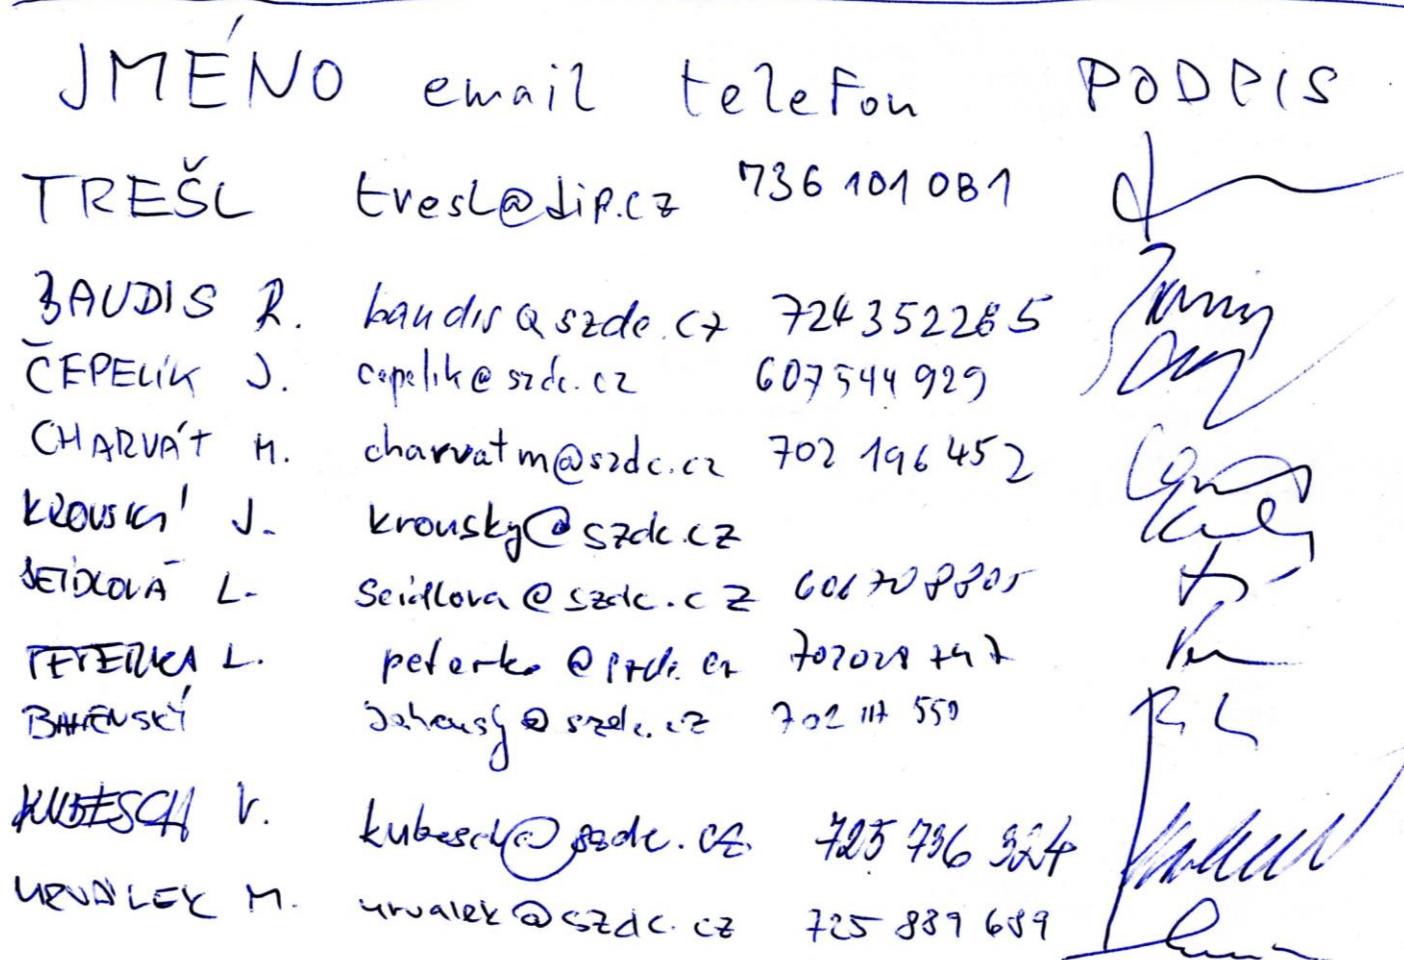 JMÉNO email telefon PODPIS
TREŠL tresl@dip.cz 736 101 081
BAUDIS R. baudis@szdc.cz 724352265
ČEPELÍK J. cepelik@szdc.cz 607544929
CHARVÁT M. charvatm@szdc.cz 702 196 452
KROUSKÝ J. krousky@szdc.cz
SEIDLOVÁ L. Seidlova@szdc.cz
PETERKA L. peterka@szdc.cz
BAHENSKÝ 702 117 559
KUBESCH V. kubesch@szdc.cz 725 736 324
URVÁLEK M. urvalek@szdc.cz 725 889 689